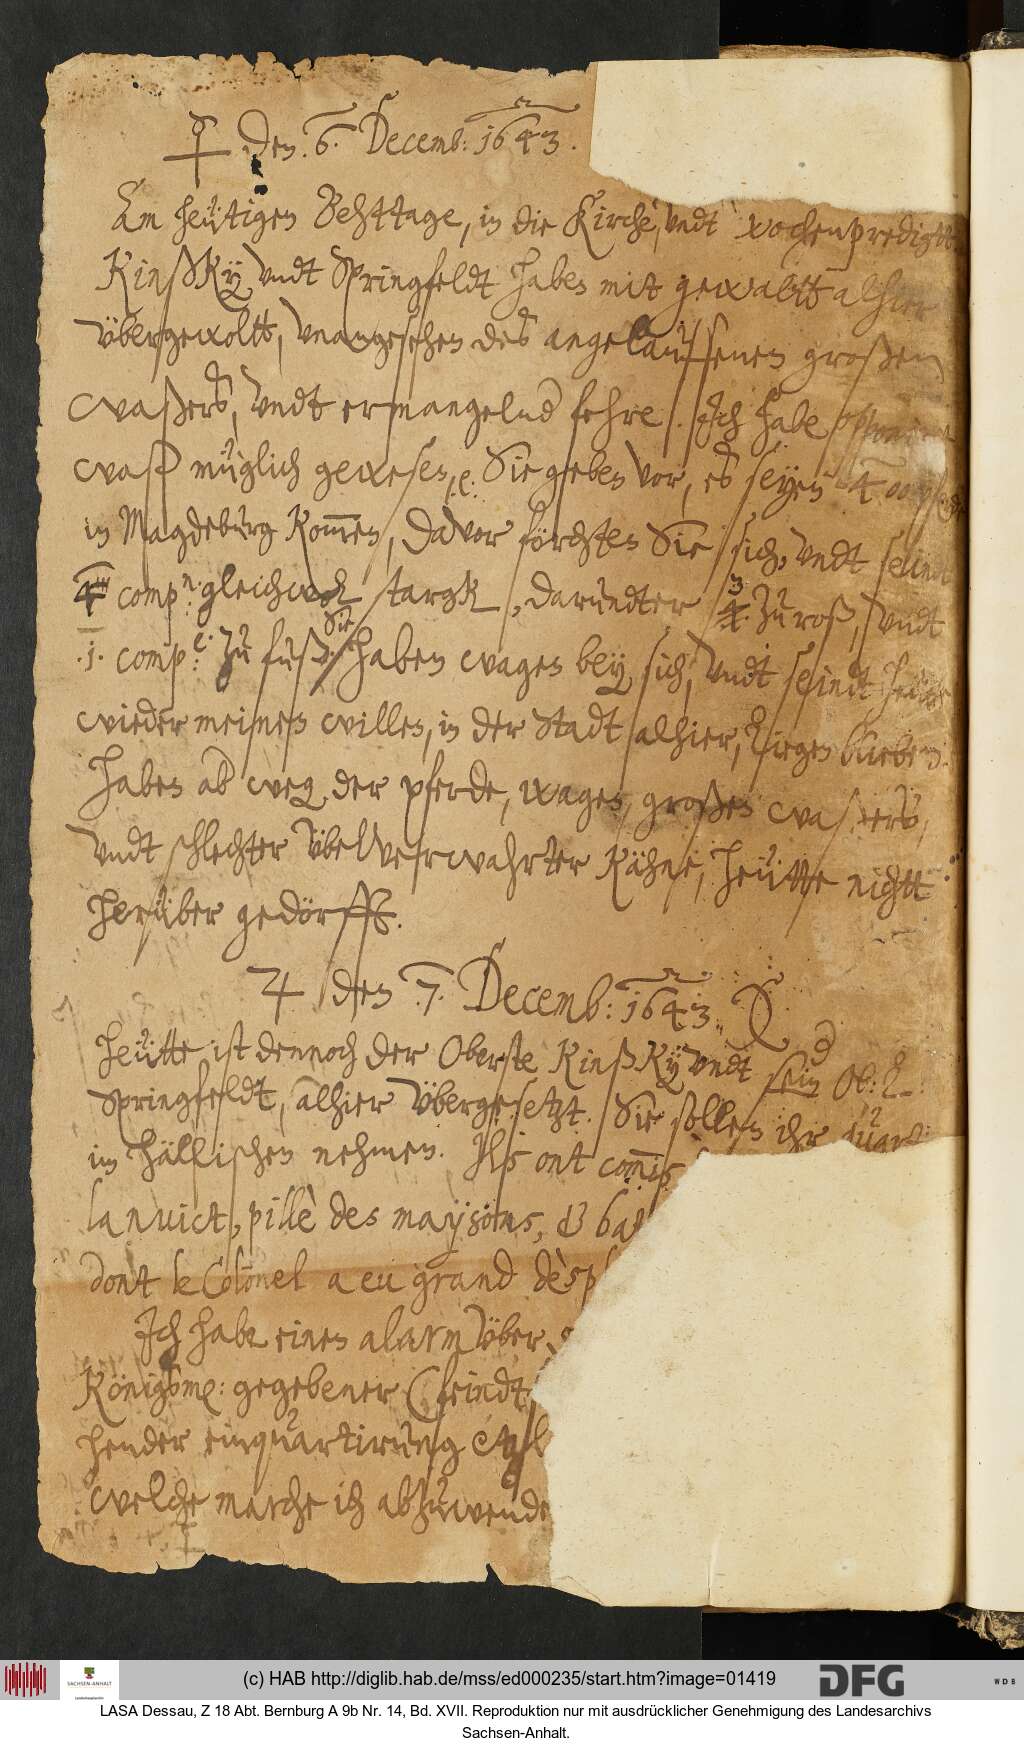 ☿ den 6. Decemb: 1643.
Am heütigen Behttage, in die Kirche, vndt wochenpredigtt
Kinßky vndt Springfeldt haben mit gewaltt alhier
vbergewoltt, vnangesehen des angelauffenen großen
waßers, vndt ermangelnd fehre. Ich habe opponirt
waß müglich gewesen, Sie geben vor, es seyen 400 pferde
in Magdeburg kommen, davor förchten Sie sich, vndt seindt
comp. gleichwol starck, darundter 3 zu roß, vndt
.1. comp. zu fuß. Sie haben wagen bey sich, vndt seindt
wieder meinen willen, in der Stadt alhier, liegen blieben.
haben ab weg. der pferde, wagen, großen waßers,
vndt schlechter vbel verwahrter Kähne, heütte nichtt
herüber gedörfft.
♃ den 7. Decemb: 1643.
Heütte ist dennoch der Oberste Kinßky vndt sein Ob: L.
Springfeldt, alhier vbergesetzt. Sie sollen ihr quart
im hällischen nehmen. Ils ont commis
la nuict, pillè des maysons, & ba
dont le Colonel a eu grand dèsp
Ich habe einen alarm vber
Königsm: gegebener (feindt
hender einquartirung
welche marche ich abzuwende
(c) HAB http://diglib.hab.de/mss/ed000235/start.htm?image=01419
SACHSEN-ANHALT
DFG
WDB
LASA Dessau, Z 18 Abt. Bernburg A 9b Nr. 14, Bd. XVII. Reproduktion nur mit ausdrücklicher Genehmigung des Landesarchivs
Sachsen-Anhalt.